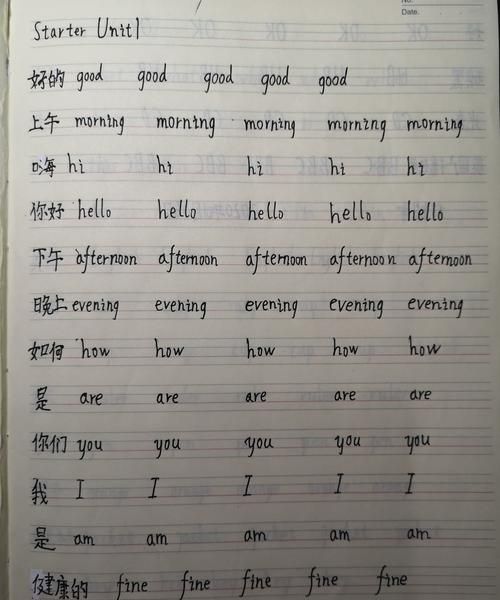 No.
Date.
Starter Unit1
好的 good good good good good
上午 morning morning morning morning morning
嗨 hi hi hi hi hi
你好 hello hello hello hello hello
下午 afternoon afternoon afternoon afternoon afternoon
晚上 evening evening evening evening evening
如何 how how how how how
是 are are are are are
你们 you you you you you
我 I I I I I
是 am am am am am
健康的 fine fine fine fine fine